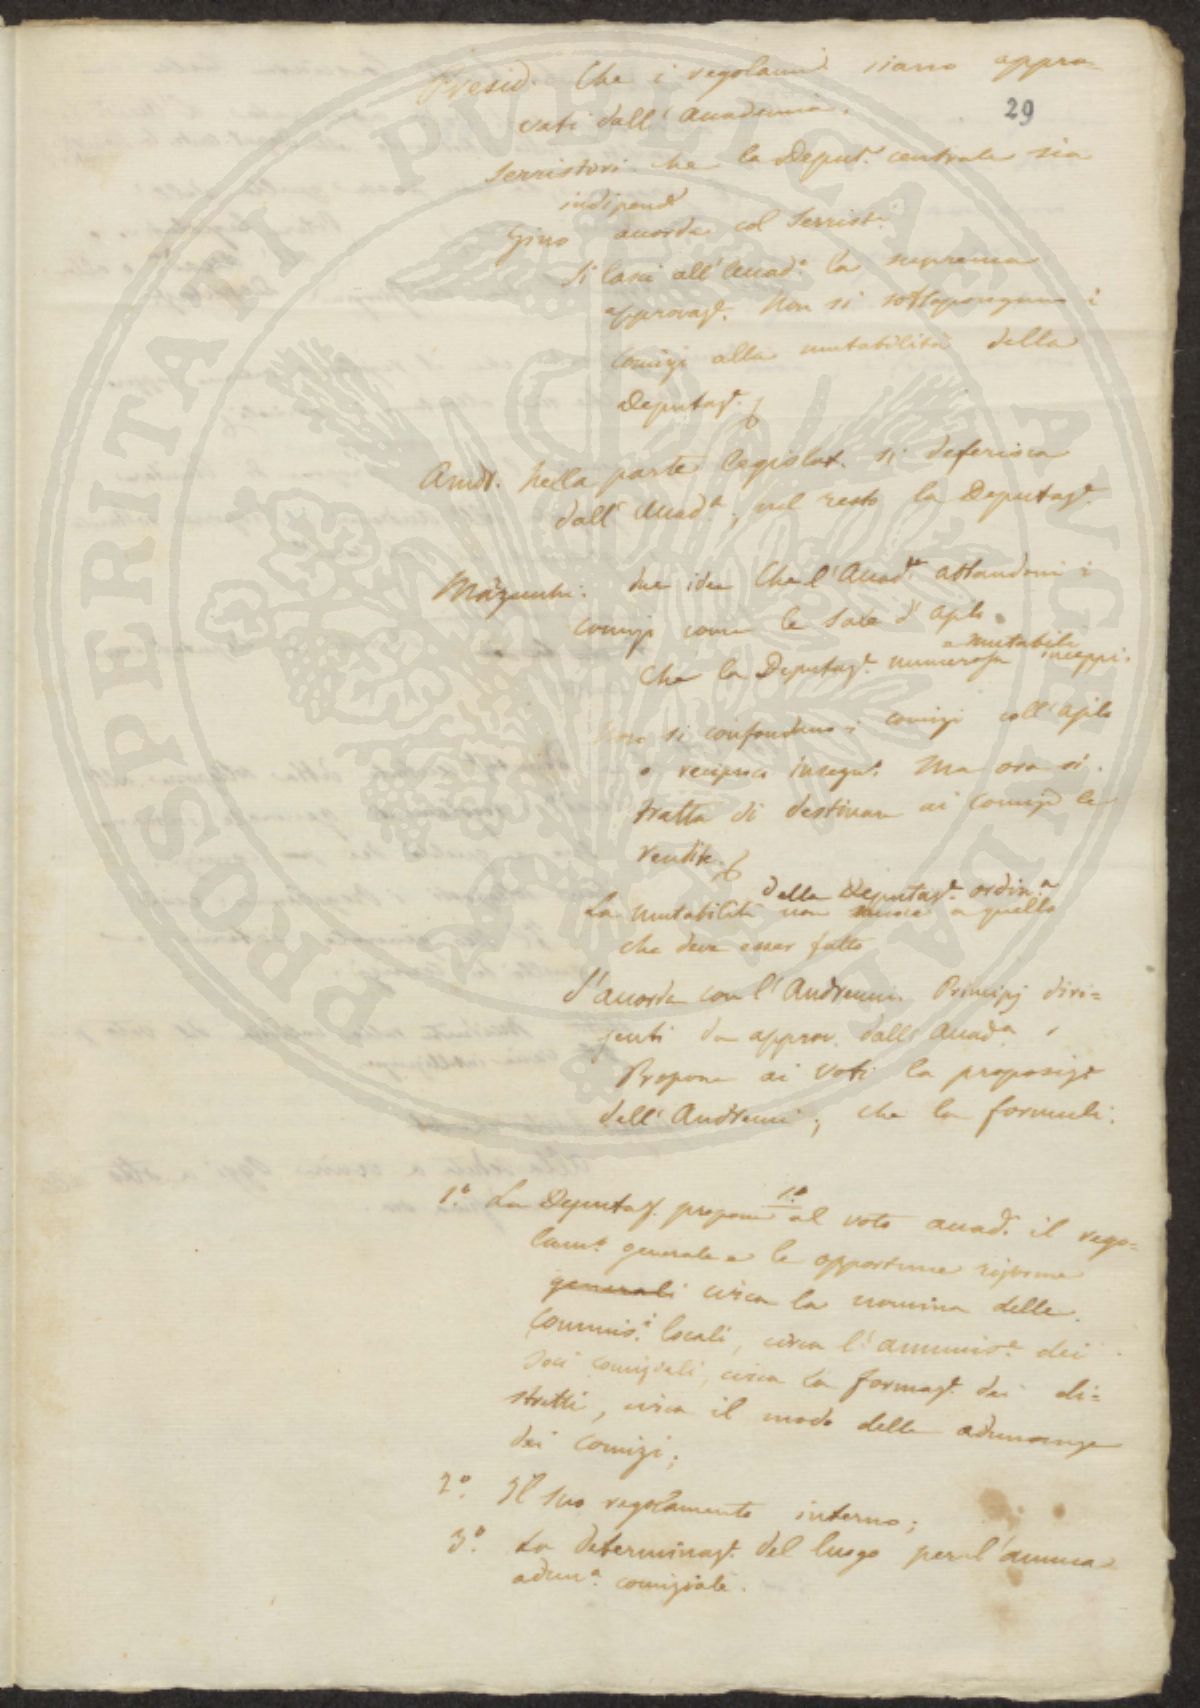 Presid. Che i regolami siano appro-
29
vati dall'Accademia.
Serristori che la Deput.e centrale sia
indipend
Gino accorda col Serrist.i
Si lasci all'Accad.a la suprema
approvaz.e Non si sottopongano i
comizj alla mutabilità della
Deputaz.e
Andr. Nella parte legislat. si deferisca
dall'Accad.a, nel resto la Deputaz.e
Mazzucchi: due idee Che l'Accad.a abbandoni i
comizj come le Sale d'Aplo.
e mutabili
Che la Deputaz.e numerosa inceppi.
Non si confondano i comizj coll'Aplo
o reciproco insegn.o Ma ora si
tratta di destinare ai comizj le
rendite.
della Deputaz.e ordin.a
La mutabilità non nuoce a quello
che deve esser fatto
d'accordo con l'Andreucci. Principj diri-
genti da approv. dall'Accad.a
Propone ai voti la proposiz.e
dell'Andreucci, che la formuli.
1.o La Deputaz. propone 1.o al voto accad. il rego-
lam.o generale e le opportune riforme
generali circa la nomina delle
Commis.i locali, circa l'ammis.e dei
soci comiziali, circa la formaz.e dei di-
stretti, circa il modo delle adunanze
dei Comizi;
2.o Il suo regolamento interno;
3.o La determinaz.e del luogo per l'annua
adun.a comiziale.
PROSPERITATI PUBLICAE AUGENDAE